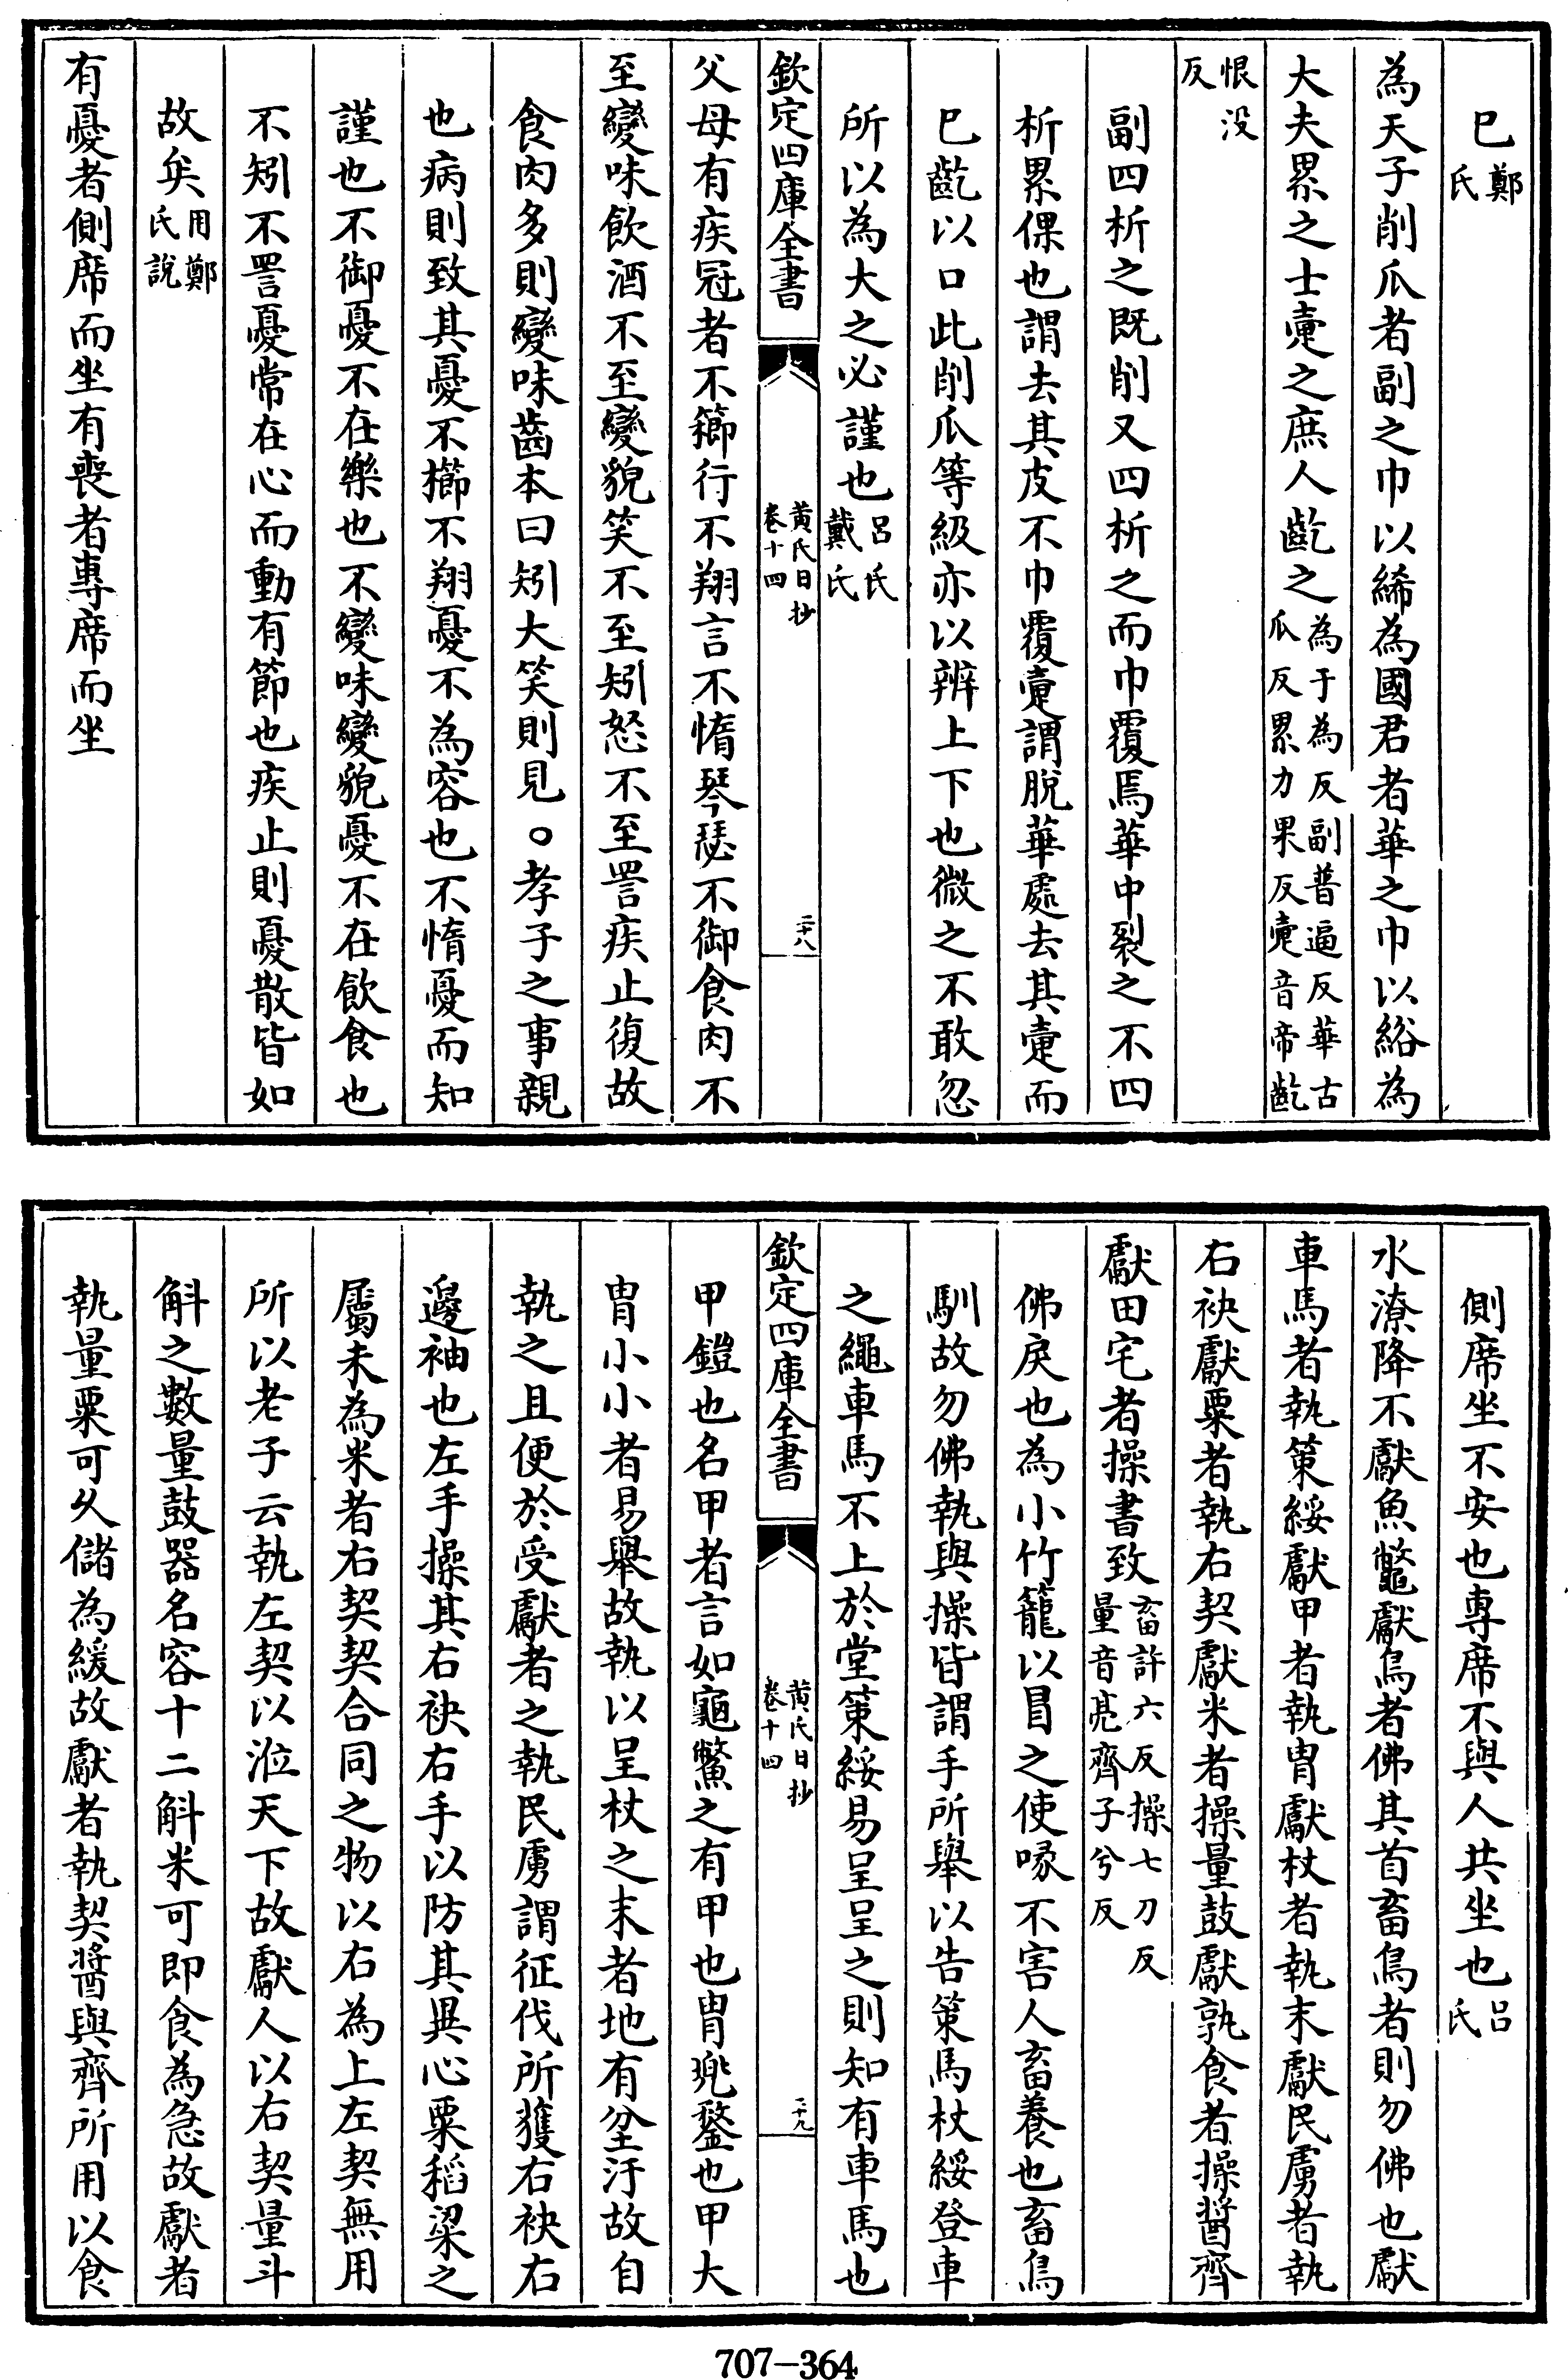 巳鄭氏
為天子削瓜者副之巾以絺為國君者華之巾以綌為
大夫累之士疐之庶人齕之為于為反副普逼反華古瓜反累力果反疐音帝齕
恨没反
副四析之既削又四析之而巾覆焉華中裂之不四
析累倮也謂去其皮不巾覆疐謂脫華處去其疐而
巳齕以口此削瓜等級亦以辨上下也微之不敢忽
所以為大之必謹也呂氏戴氏
欽定四庫全書
黄氏日抄
卷十四
二十八
父母有疾冠者不櫛行不翔言不惰琴瑟不御食肉不
至變味飲酒不至變貌笑不至矧怒不至詈疾止復故
食肉多則變味齒本曰矧大笑則見○孝子之事親
也病則致其憂不櫛不翔憂不為容也不惰憂而知
謹也不御憂不在樂也不變味變貌憂不在飲食也
不矧不詈憂常在心而動有節也疾止則憂散皆如
故矣用鄭氏說
有憂者側席而坐有喪者專席而坐
側席坐不安也專席不與人共坐也呂氏
水潦降不獻魚鼈獻鳥者佛其首畜鳥者則勿佛也獻
車馬者執策綏獻甲者執胄獻杖者執末獻民虜者執
右袂獻粟者執右契獻米者操量鼓獻孰食者操醬齊
獻田宅者操書致畜許六反操七刀反量音亮齊子兮反
佛戾也為小竹籠以冒之使喙不害人畜養也畜鳥
馴故勿佛執與操皆謂手所舉以告策馬杖綏登車
之繩車馬不上於堂策綏易呈呈之則知有車馬也
欽定四庫全書
黄氏日抄
卷十四
二十九
甲鎧也名甲者言如龜鱉之有甲也胄兠鍪也甲大
胄小小者易舉故執以呈杖之末者地有坌汙故自
執之且便於受獻者之執民虜謂征伐所獲右袂右
邊袖也左手操其右袂右手以防其異心粟稻粱之
屬未為米者右契契合同之物以右為上左契無用
所以老子云執左契以涖天下故獻人以右契量斗
斛之數量鼓器名容十二斛米可即食為急故獻者
執量粟可久儲為緩故獻者執契醬與齊所用以食
707-364